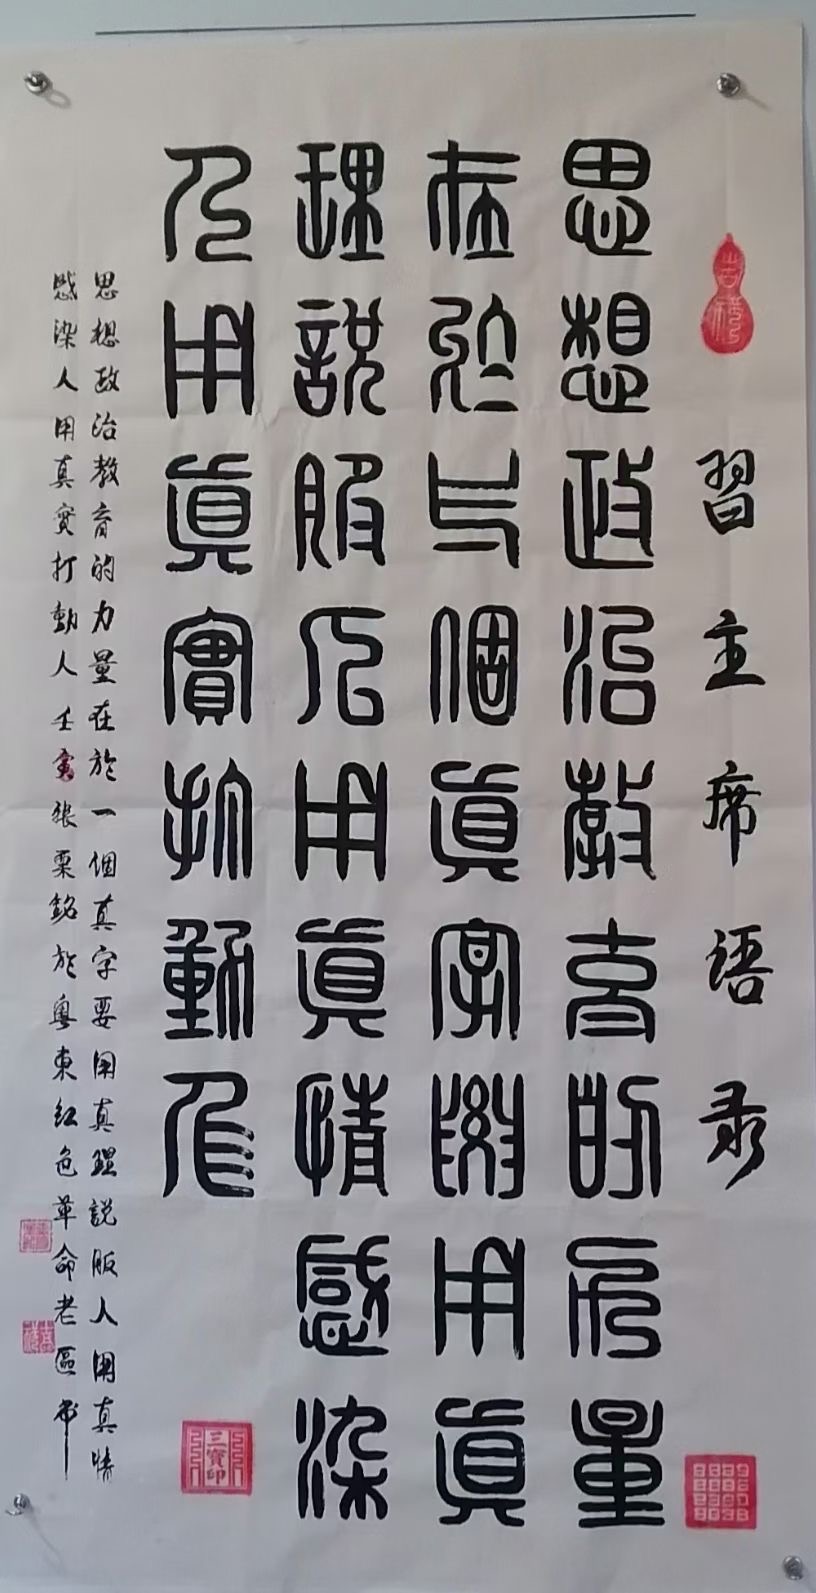 習主席语录
思想政治教育的力量
在於一個真字要用真
理説服人用真情感染
人用真實打動人
思想政治教育的力量在於一個真字要用真理説服人用真情
感染人用真實打動人壬寅張粟銘於粤東紅色革命老區書
三寳印